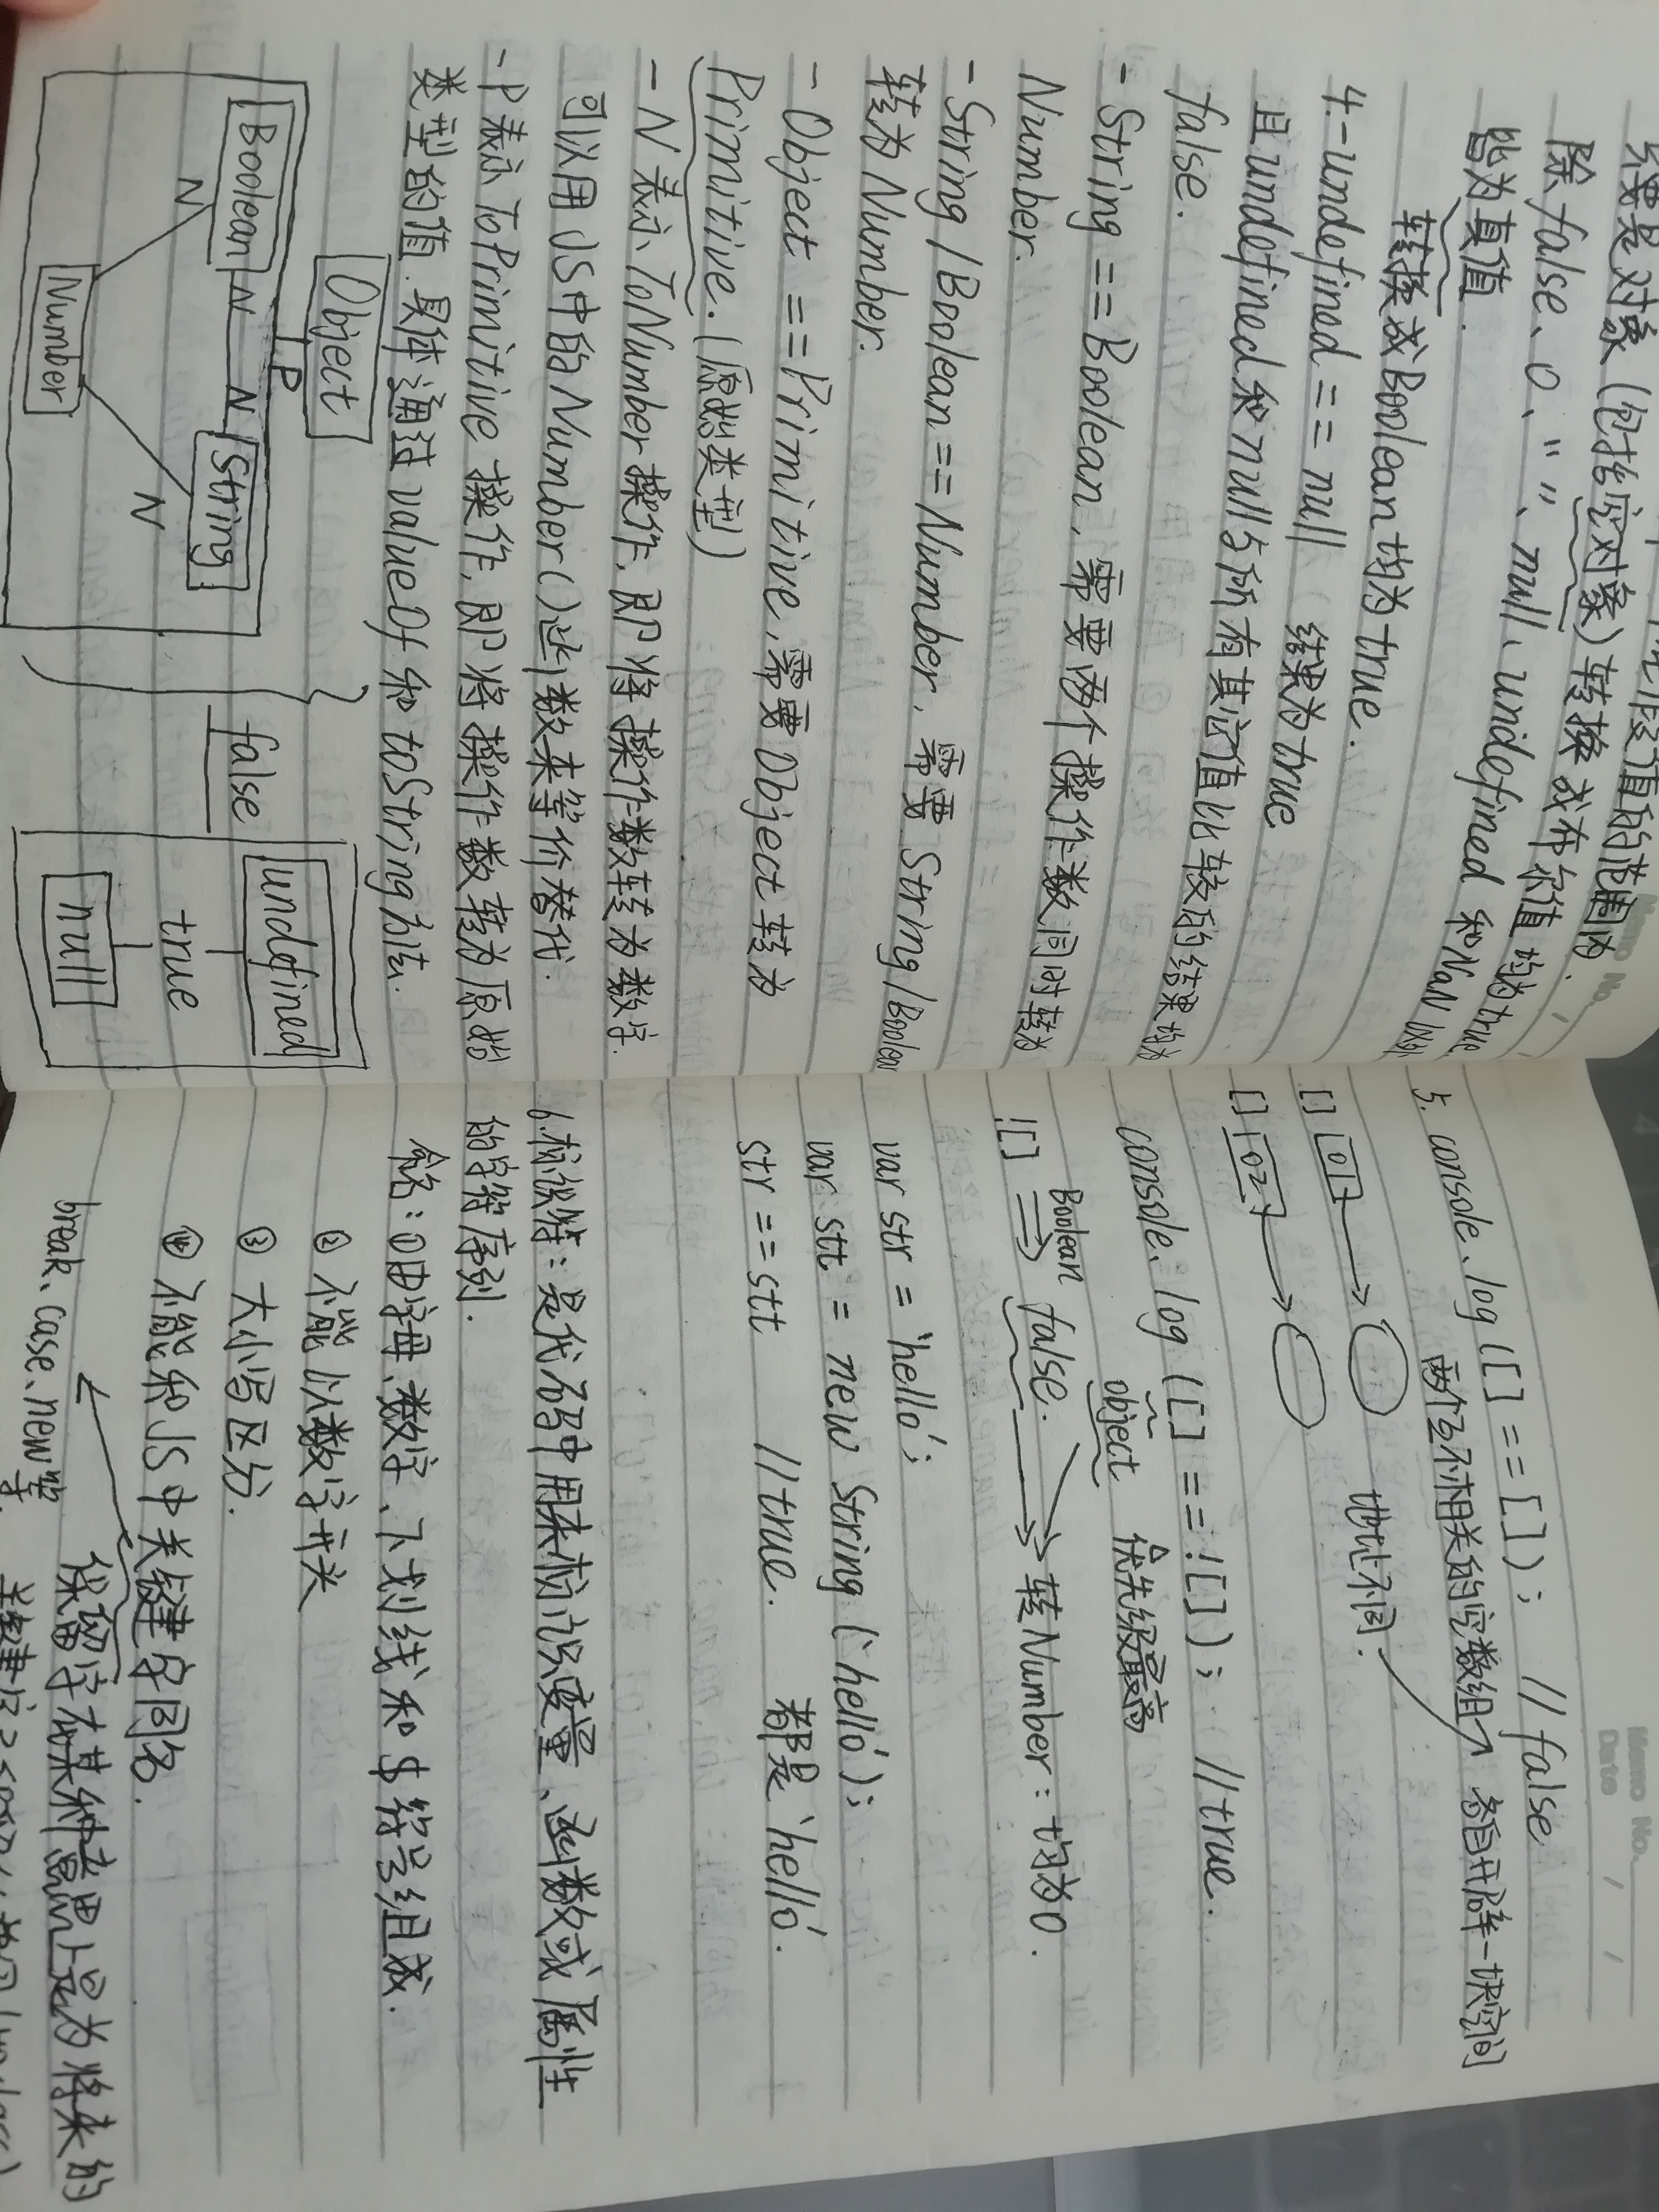 只要是对象（包括空对象）转换成布尔值均为true
除 false、0、" "、null、undefined 和NaN 以外
皆为真值.
转换成Boolean均为true.
4.-undefined == null 结果为true
且undefined和null与所有其它值比较的结果均为
false.
- String == Boolean, 需要两个操作数同时转为
Number.
- String / Boolean == Number, 需要 String / Boolean
转为 Number.
- Object == Primitive, 需要Object转为
Primitive. (原始类型)
- N表示ToNumber操作, 即将操作数转为数字.
可以用JS中的Number()函数来等价替代.
- P表示ToPrimitive操作, 即将操作数转为原始
类型的值. 具体通过valueOf和toString方法.
Object
P
Boolean N N String
N N
Number
false
undefined
true
null
Memo No.
Date / /
5. console.log ([] == []); // false
两个互不相关的空数组 各自开辟一块空间
[] 01 地址不同.
[] 02
console.log ([] == ![]); //true.
object 优先级最高
![] Boolean false. 转Number: 均为0.
var str = 'hello';
var stt = new String ('hello');
str == stt //true. 都是'hello'.
6.标识符: 是代码中用来标识变量、函数或属性
的字符序列.
命名: ①由字母、数字、下划线和$符号组成.
② 不能以数字开头
③ 大小写区分.
④ 不能和JS中关键字同名.
保留字在某种意思上是为将来的
break、case、new等.